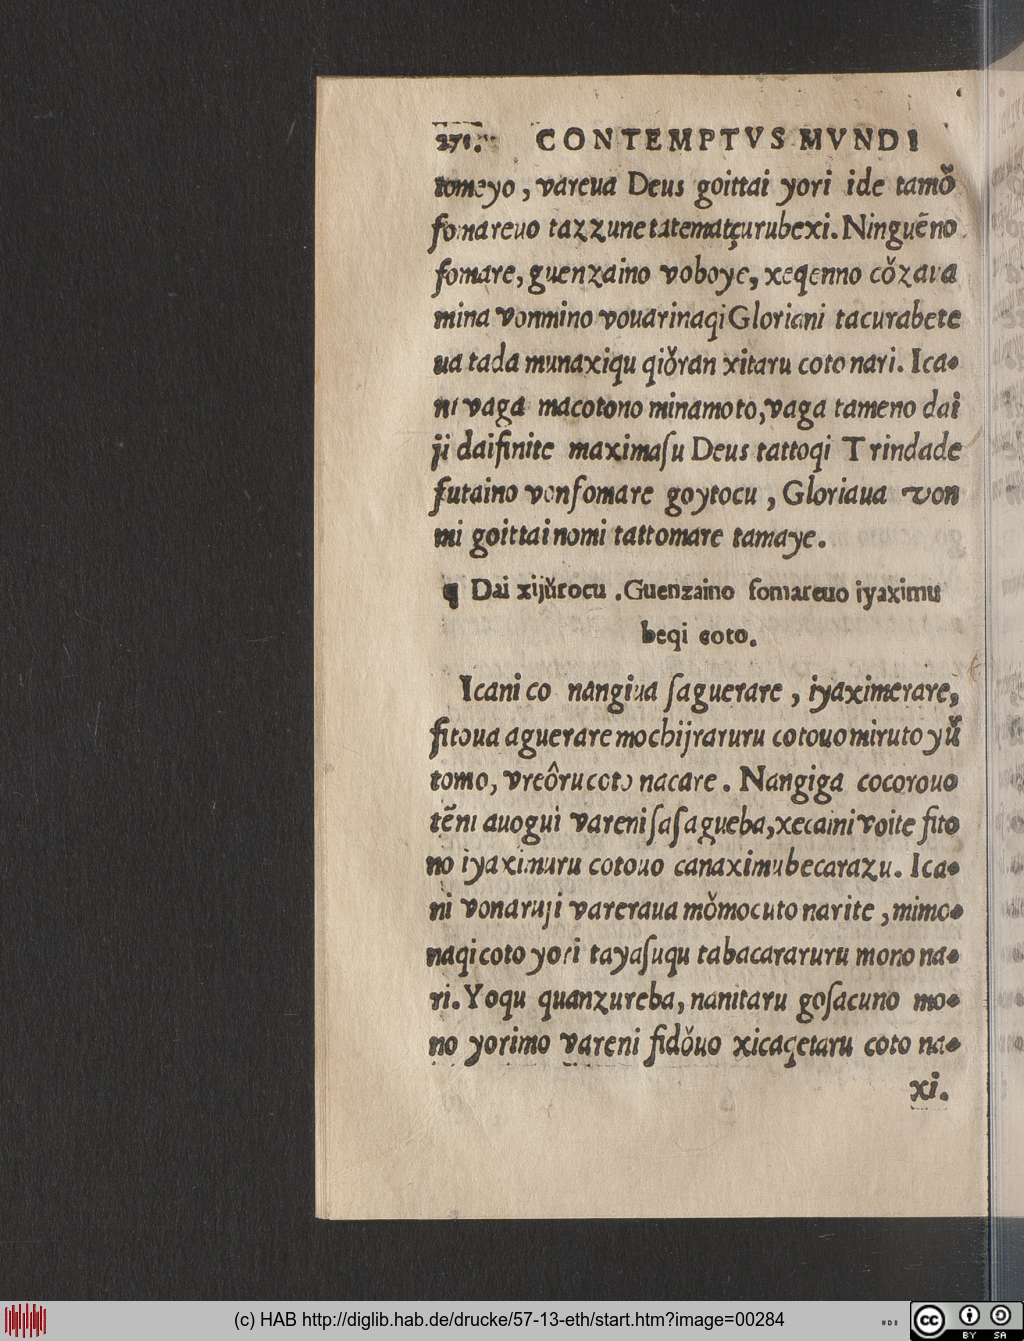 271. CONTEMPTVS MVNDI
tomeyo, vareua Deus goittai yori ide tamŏ
fomareuo tazzune tatematçurubexi. Ninguẽno
fomare, guenzaino voboye, xeqenno cŏzaua
mina vonmino vouarinaqi Gloriani tacurabete
ua tada munaxiqu qiŏran xitaru coto nari. Ica-
ni vaga macotono minamoto, vaga tameno dai
ji daifinite maximaſu Deus tattoqi Trindade
futaino vonfomare goytocu, Gloriaua von
mi goittai nomi tattomare tamaye.
¶ Dai xijŭrocu. Guenzaino fomareuo iyaximu
beqi coto.
Icani co nangiua ſaguerare, iyaximerare,
fitoua aguerare mochijraruru cotouo miruto yŭ
tomo, vreôru coto nacare. Nangiga cocorouo
tẽni auogui vareni ſaſagueba, xecaini voite fito
no iyaximuru cotouo canaximu becarazu. Ica-
ni vonaruji vareraua mŏmocuto narite, mimo-
naqi coto yori tayaſuqu tabacararuru mono na-
ri. Yoqu quanzureba, nanitaru goſacuno mo-
no yorimo vareni fidŏuo xicaqetaru coto na-
xi.
(c) HAB http://diglib.hab.de/drucke/57-13-eth/start.htm?image=00284
cc BY SA